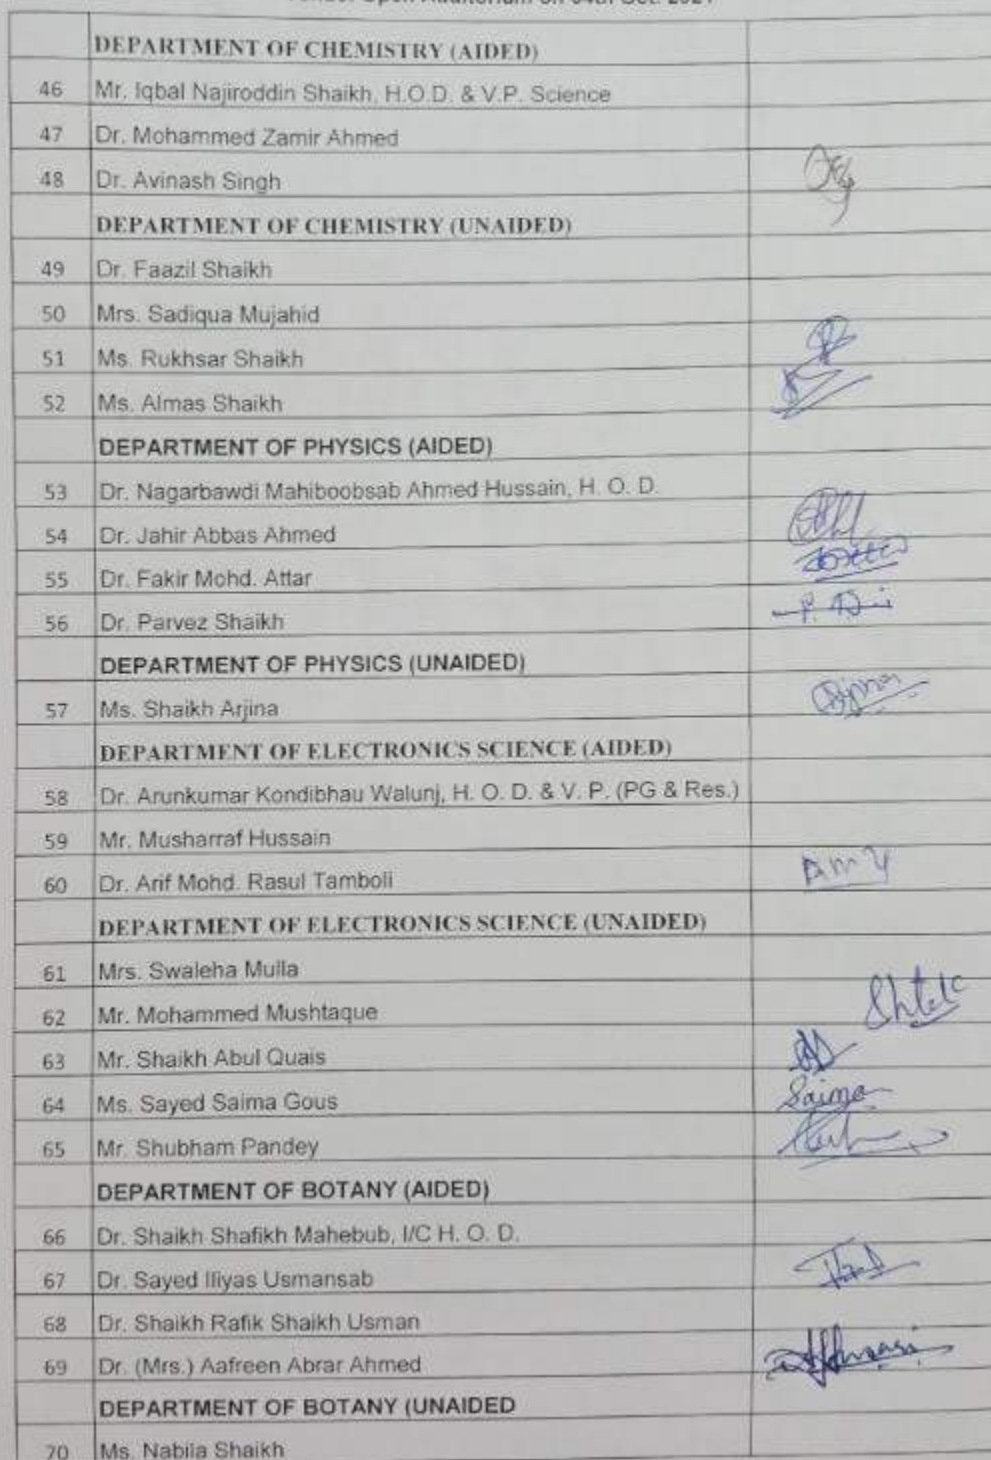 Open Auditorium on 04th Oct. 2021
DEPARTMENT OF CHEMISTRY (AIDED)
46 Mr. Iqbal Najiroddin Shaikh, H.O.D. & V.P. Science
47 Dr. Mohammed Zamir Ahmed
48 Dr. Avinash Singh
DEPARTMENT OF CHEMISTRY (UNAIDED)
49 Dr. Faazil Shaikh
50 Mrs. Sadiqua Mujahid
51 Ms. Rukhsar Shaikh
52 Ms. Almas Shaikh
DEPARTMENT OF PHYSICS (AIDED)
53 Dr. Nagarbawdi Mahiboobsab Ahmed Hussain, H. O. D.
54 Dr. Jahir Abbas Ahmed
55 Dr. Fakir Mohd. Attar
56 Dr. Parvez Shaikh
DEPARTMENT OF PHYSICS (UNAIDED)
57 Ms. Shaikh Arjina
DEPARTMENT OF ELECTRONICS SCIENCE (AIDED)
58 Dr. Arunkumar Kondibhau Walunj, H. O. D. & V. P. (PG & Res.)
59 Mr. Musharraf Hussain
60 Dr. Arif Mohd. Rasul Tamboli
DEPARTMENT OF ELECTRONICS SCIENCE (UNAIDED)
61 Mrs. Swaleha Mulla
62 Mr. Mohammed Mushtaque
63 Mr. Shaikh Abul Quais
64 Ms. Sayed Saima Gous Saima
65 Mr. Shubham Pandey
DEPARTMENT OF BOTANY (AIDED)
66 Dr. Shaikh Shafikh Mahebub, I/C H. O. D.
67 Dr. Sayed Iliyas Usmansab
68 Dr. Shaikh Rafik Shaikh Usman
69 Dr. (Mrs.) Aafreen Abrar Ahmed
DEPARTMENT OF BOTANY (UNAIDED
70 Ms. Nabila Shaikh